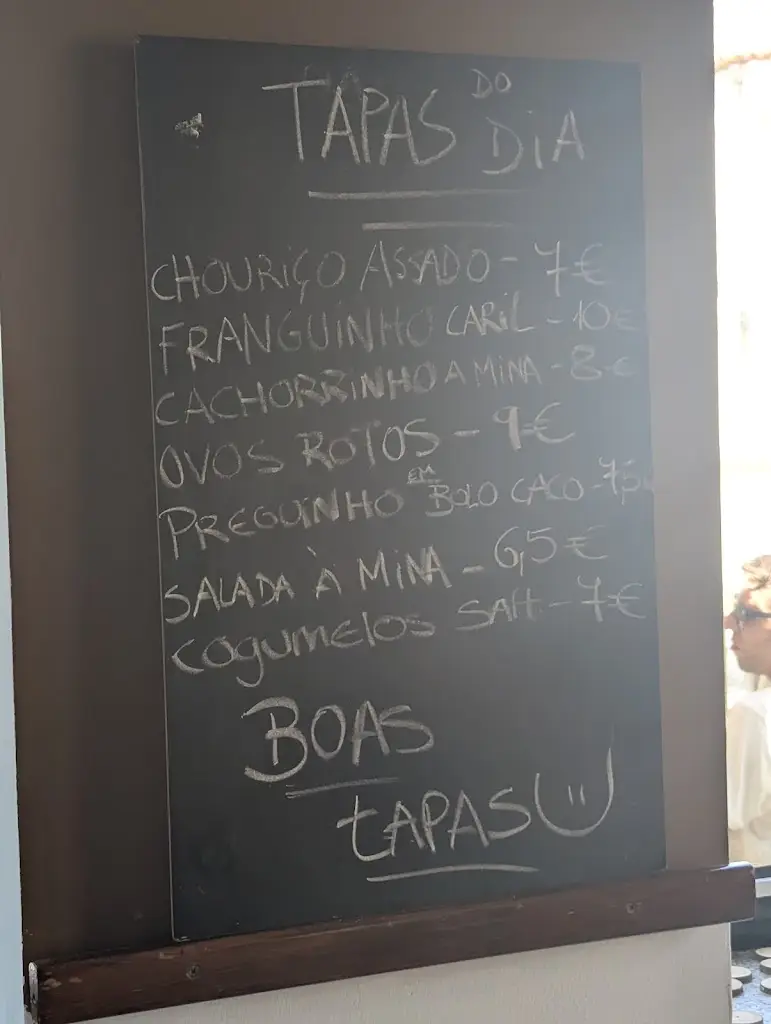 TAPAS DO DiA
CHOURIÇO ASSADO - 7€
FRANGUINHO CARIL - 10€
CACHORRINHO A MINA - 8€
OVOS ROTOS - 9€
PREGUINHO EM BOLO CACO - 7,5
SALADA À MINA - 6,5€
COGUMELOS SALT - 7€
BOAS
tAPAS